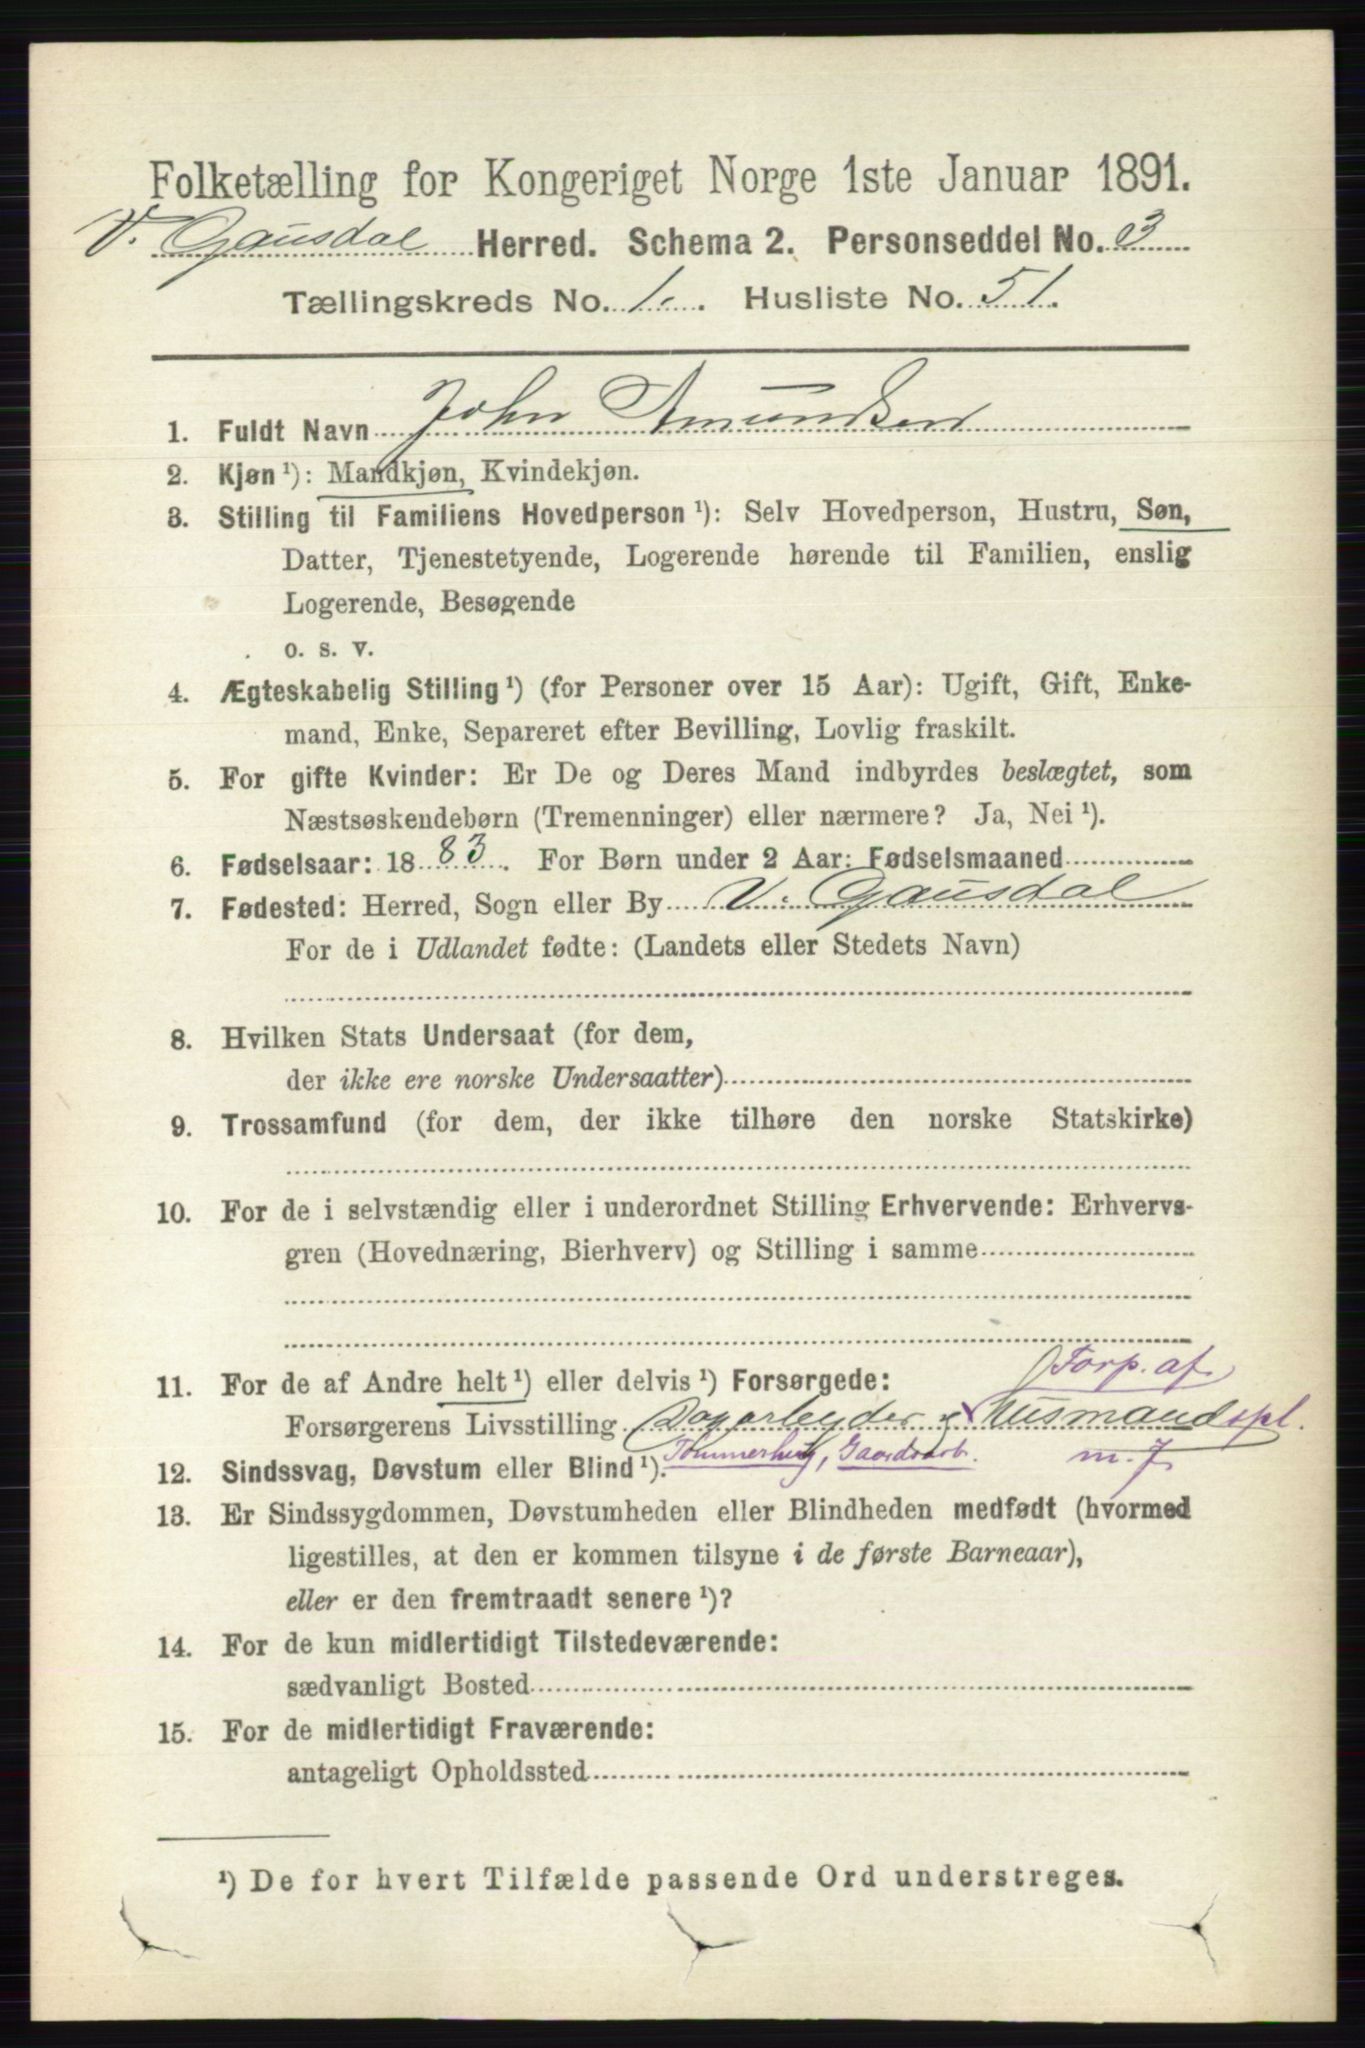 Folketælling for Kongeriget Norge 1ste Januar 1891.
V. Gausdal Herred. Schema 2. Personseddel No. 3
Tællingskreds No. 1. Husliste No. 51.
1. Fuldt Navn John Amundsen
2. Kjøn ¹): Mandkjøn, Kvindekjøn.
3. Stilling til Familiens Hovedperson ¹): Selv Hovedperson, Hustru, Søn,
Datter, Tjenestetyende, Logerende hørende til Familien, enslig
Logerende, Besøgende
o. s. v.
4. Ægteskabelig Stilling ¹) (for Personer over 15 Aar): Ugift, Gift, Enke-
mand, Enke, Separeret efter Bevilling, Lovlig fraskilt.
5. For gifte Kvinder: Er De og Deres Mand indbyrdes beslægtet, som
Næstsøskendebørn (Tremenninger) eller nærmere? Ja, Nei ¹).
6. Fødselsaar: 1883. For Børn under 2 Aar: Fødselsmaaned
7. Fødested: Herred, Sogn eller By V. Gausdal
For de i Udlandet fødte: (Landets eller Stedets Navn)
8. Hvilken Stats Undersaat (for dem,
der ikke ere norske Undersaatter)
9. Trossamfund (for dem, der ikke tilhøre den norske Statskirke)
10. For de i selvstændig eller i underordnet Stilling Erhvervende: Erhvervs-
gren (Hovednæring, Bierhverv) og Stilling i samme
Forp. af
11. For de af Andre helt ¹) eller delvis ¹) Forsørgede:
Forsørgerens Livsstilling Dagarbeyder Husmandspl.
Tømmerhug, Gaardsarb. m. J
12. Sindssvag, Døvstum eller Blind ¹).
13. Er Sindssygdommen, Døvstumheden eller Blindheden medfødt (hvormed
ligestilles, at den er kommen tilsyne i de første Barneaar),
eller er den fremtraadt senere ¹)?
14. For de kun midlertidigt Tilstedeværende:
sædvanligt Bosted
15. For de midlertidigt Fraværende:
antageligt Opholdssted
¹) De for hvert Tilfælde passende Ord understreges.